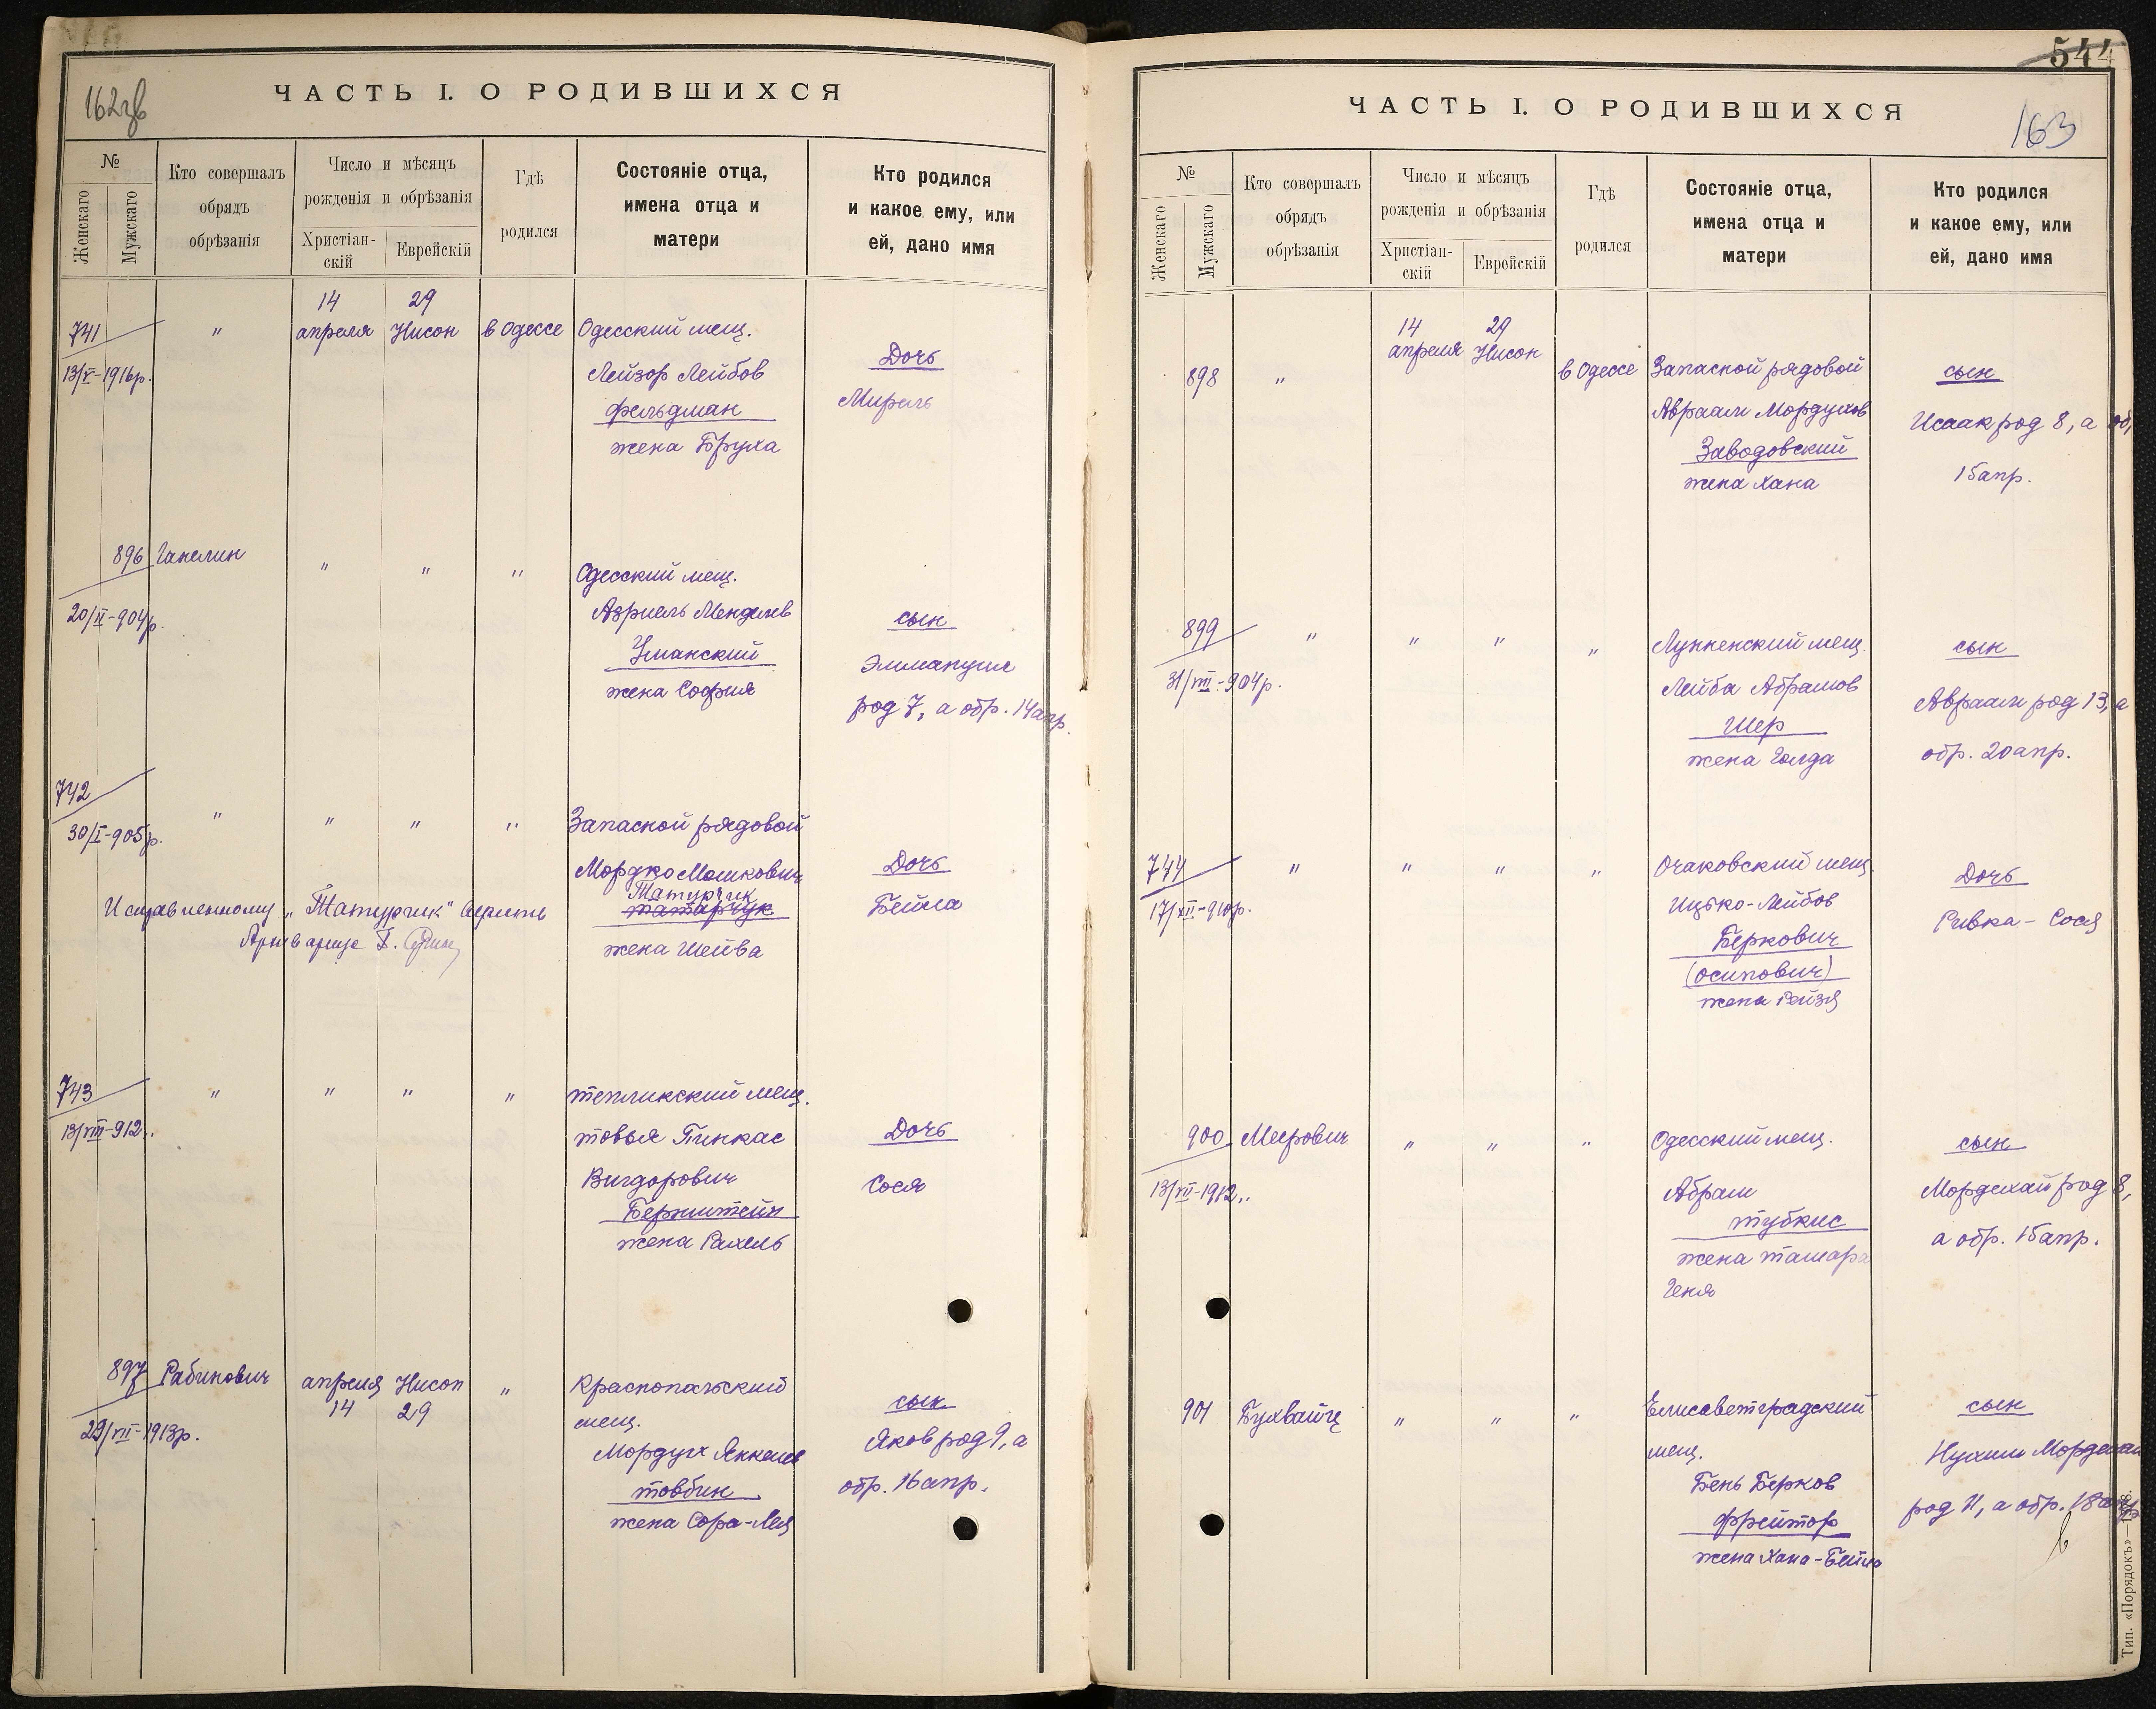 162
ЧАСТЬ I. О РОДИВШИХСЯ
№
Женскаго
Мужскаго
Кто совершалъ
обрядъ
обрѣзанія
Число и мѣсяцъ
рожденія и обрѣзанія
Христіан-
скій
Еврейскій
Гдѣ
родился
Состояніе отца,
имена отца и
матери
Кто родился
и какое ему, или
ей, дано имя
14 29
741 " апреля Нисон в Одессе Одесский мещ.
13/V-1916р. Лейзор Лейбов Дочь
Фельдман Мирель
жена Бруха
896 Ганелин " " " Одесский мещ.
20/II-904р. Азриель Менделев сын
Уманский Эммануил
жена София род 7, а обр. 14 апр.
742 " " " " Запасной рядовой
30/I-905р. Мордко Мошкович Дочь
Татурчик
Исправленному „Татурчик" верить Татарчук Бейла
Архивариус
жена Шейва
743 " " " " Тепликский мещ.
13/VIII-912 Товья Пинкас Дочь
Вигдорович Сося
Бернштейн
жена Рахель
897 Рабинович апреля Нисон " Краснопольский
14 29 мещ. сын
29/VII-1913р. Мордух Янкелев Яков род 9, а
Товбин обр. 16 апр.
жена Сора-Лея
544
163
ЧАСТЬ I. О РОДИВШИХСЯ
№
Женскаго
Мужскаго
Кто совершалъ
обрядъ
обрѣзанія
Число и мѣсяцъ
рожденія и обрѣзанія
Христіан-
скій
Еврейскій
Гдѣ
родился
Состояніе отца,
имена отца и
матери
Кто родился
и какое ему, или
ей, дано имя
14 29
апреля Нисон
898 " в Одессе Запасной рядовой сын
Авраам Мордухов Исаак род 8, а об.
Заводовский 15 апр.
жена Хана
899 " " " " мещ. сын
31/VIII-904р. Лейба Абрамов Авраам род 13, а
Шер обр. 20 апр.
жена Голда
744 " " " " Очаковский мещ. Дочь
17/XII-910р. Ицько-Лейбов Ривка-Сося
Беркович
(Осипович)
жена Рейзя
900 Меерович " " " Одесский мещ. сын
13/VII-1912 Абрам Мордехай род 8,
Тубкис а обр. 15 апр.
жена Тамара
Геня
901 Бухвайц " " " Елисаветградский сын
мещ. Нухим Мордехай
Бень Берков род 11, а обр. 18 апр
Фрейтор
жена Хана-Бейла
Тип. «Порядокъ»